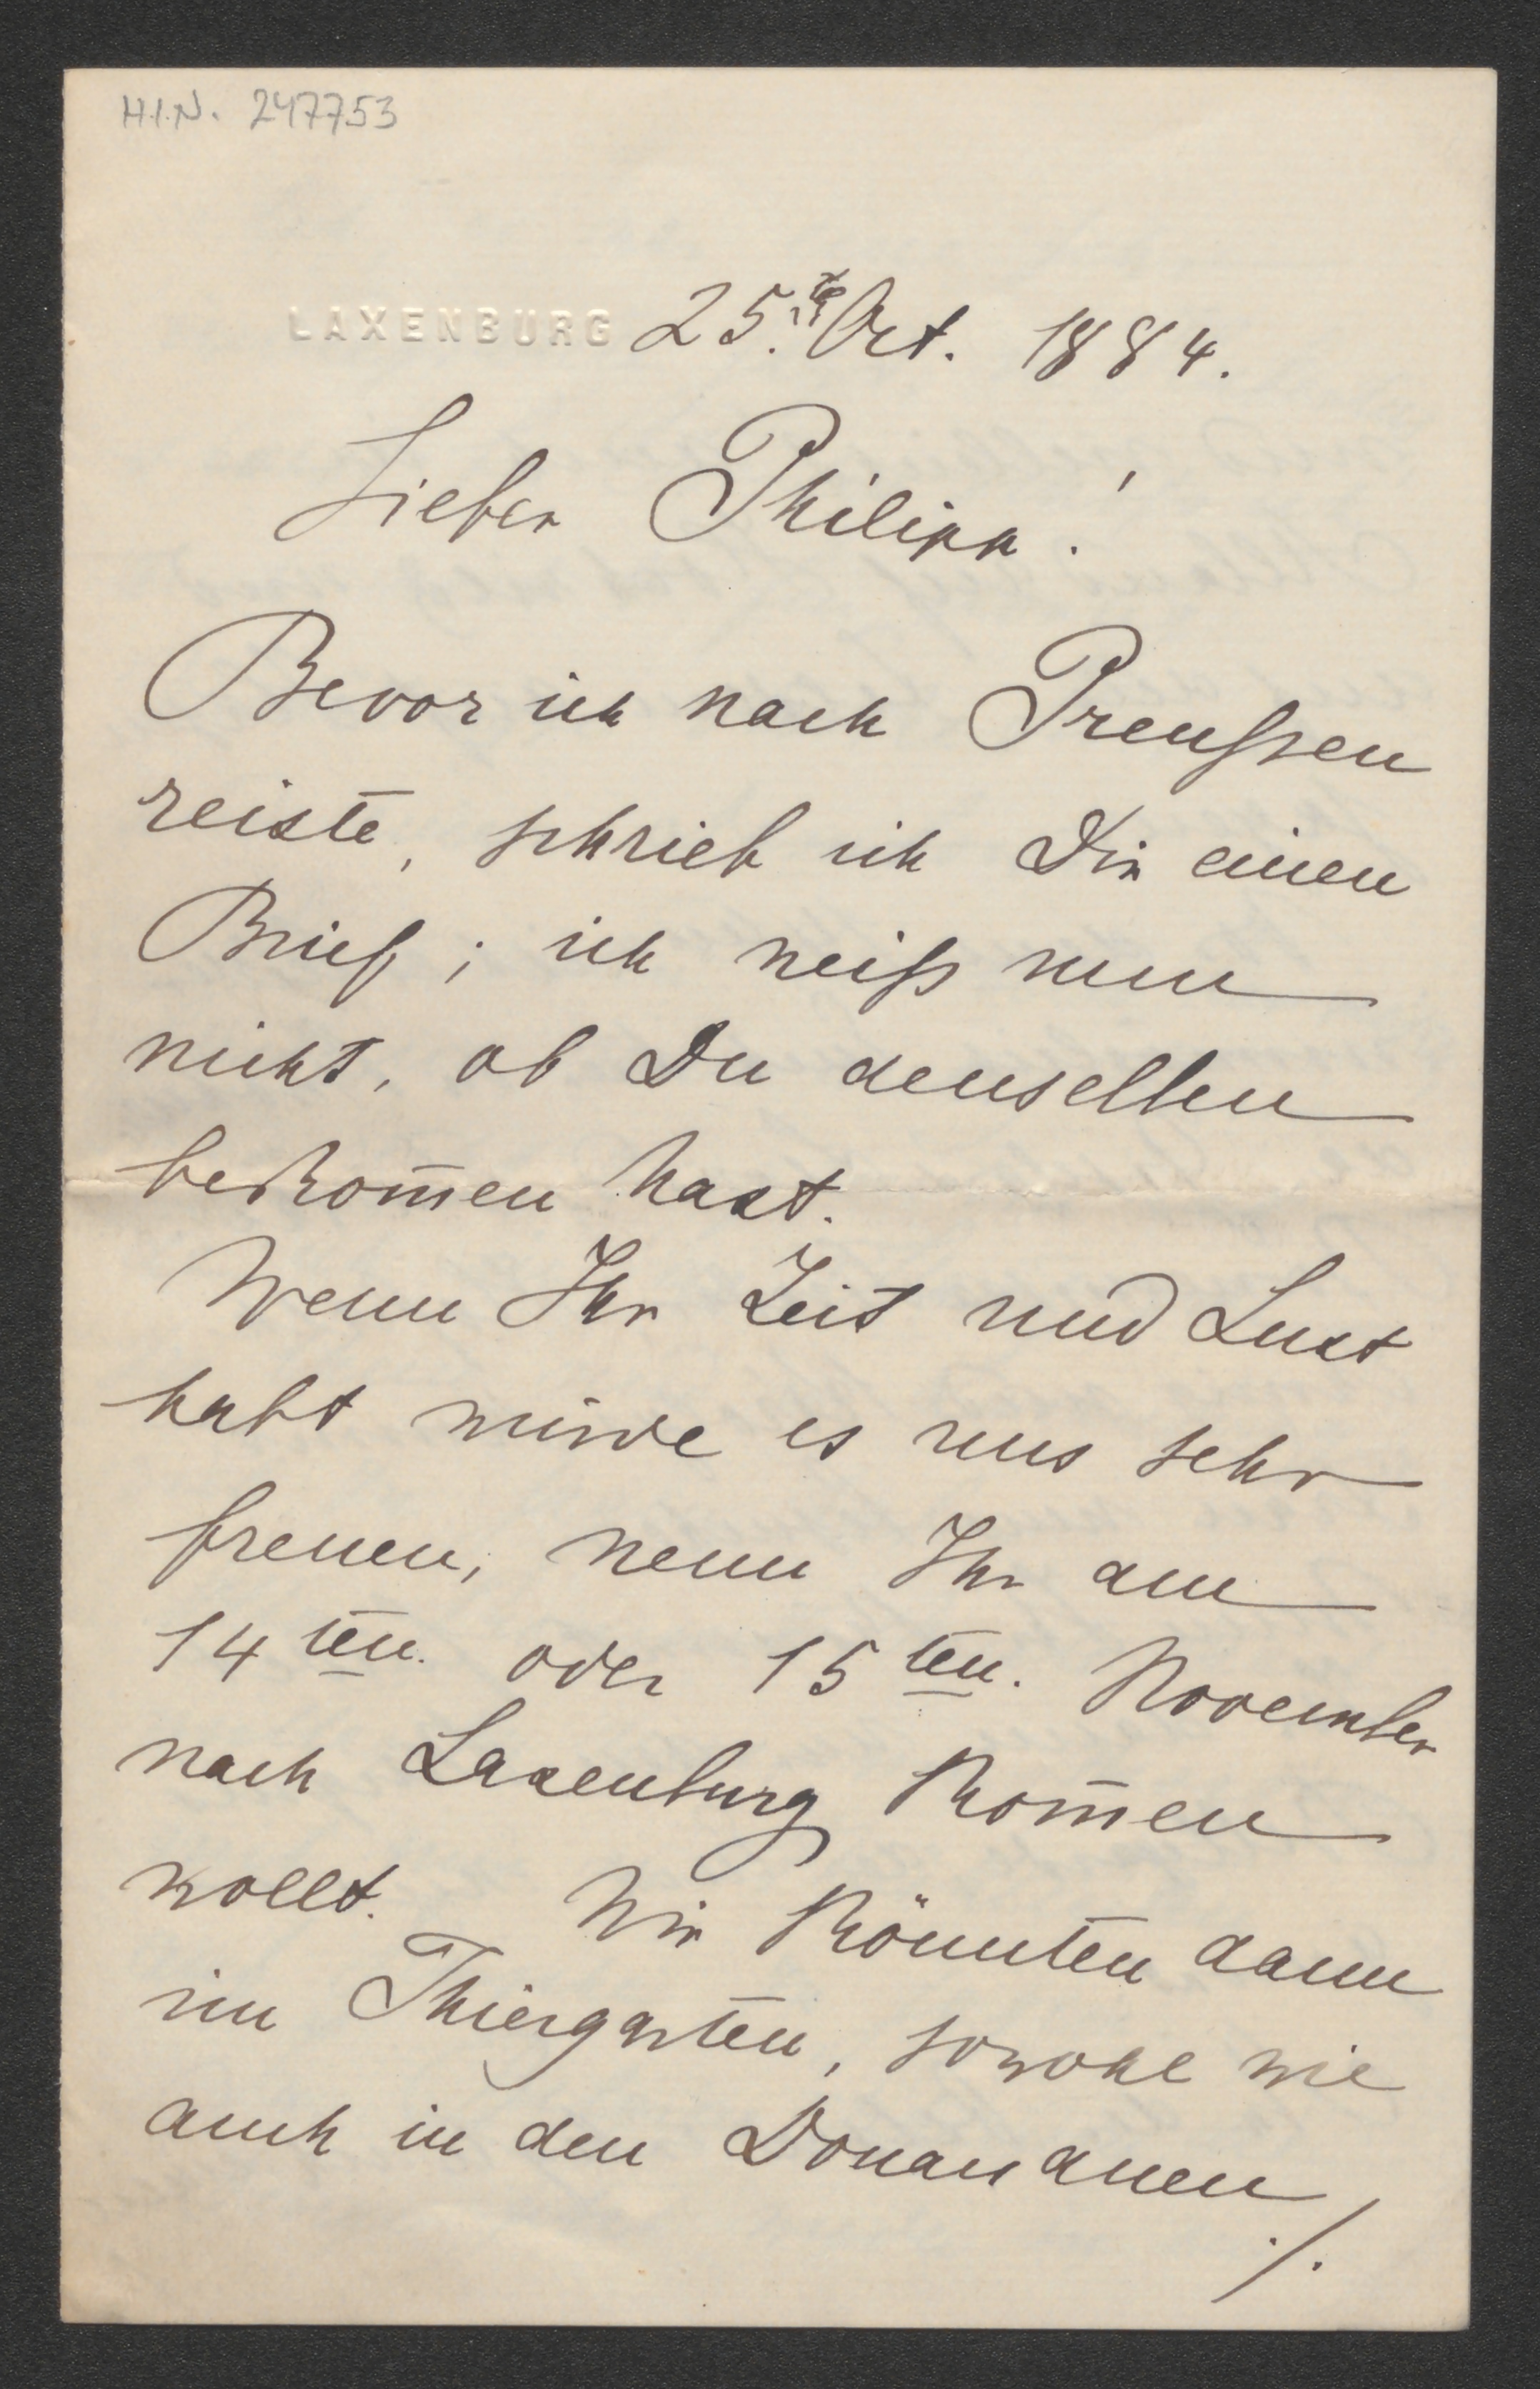 H.I.N. 247753
LAXENBURG 25. Oct. 1884.
Lieber Philipp!
Bevor ich nach Preußen
reiste, schrieb ich Dir einen
Brief; ich weiß nun
nicht, ob Du denselben
bekom̄en hast.
Wenn Ihr Zeit und Lust
habt würde es uns sehr
freuen, wenn Ihr am
14ten. oder 15ten. November
nach Laxenburg kom̄en
wollt. Wir könnten dann
im Thiergarten, sowohl wie
auch in den Donauauen
./.